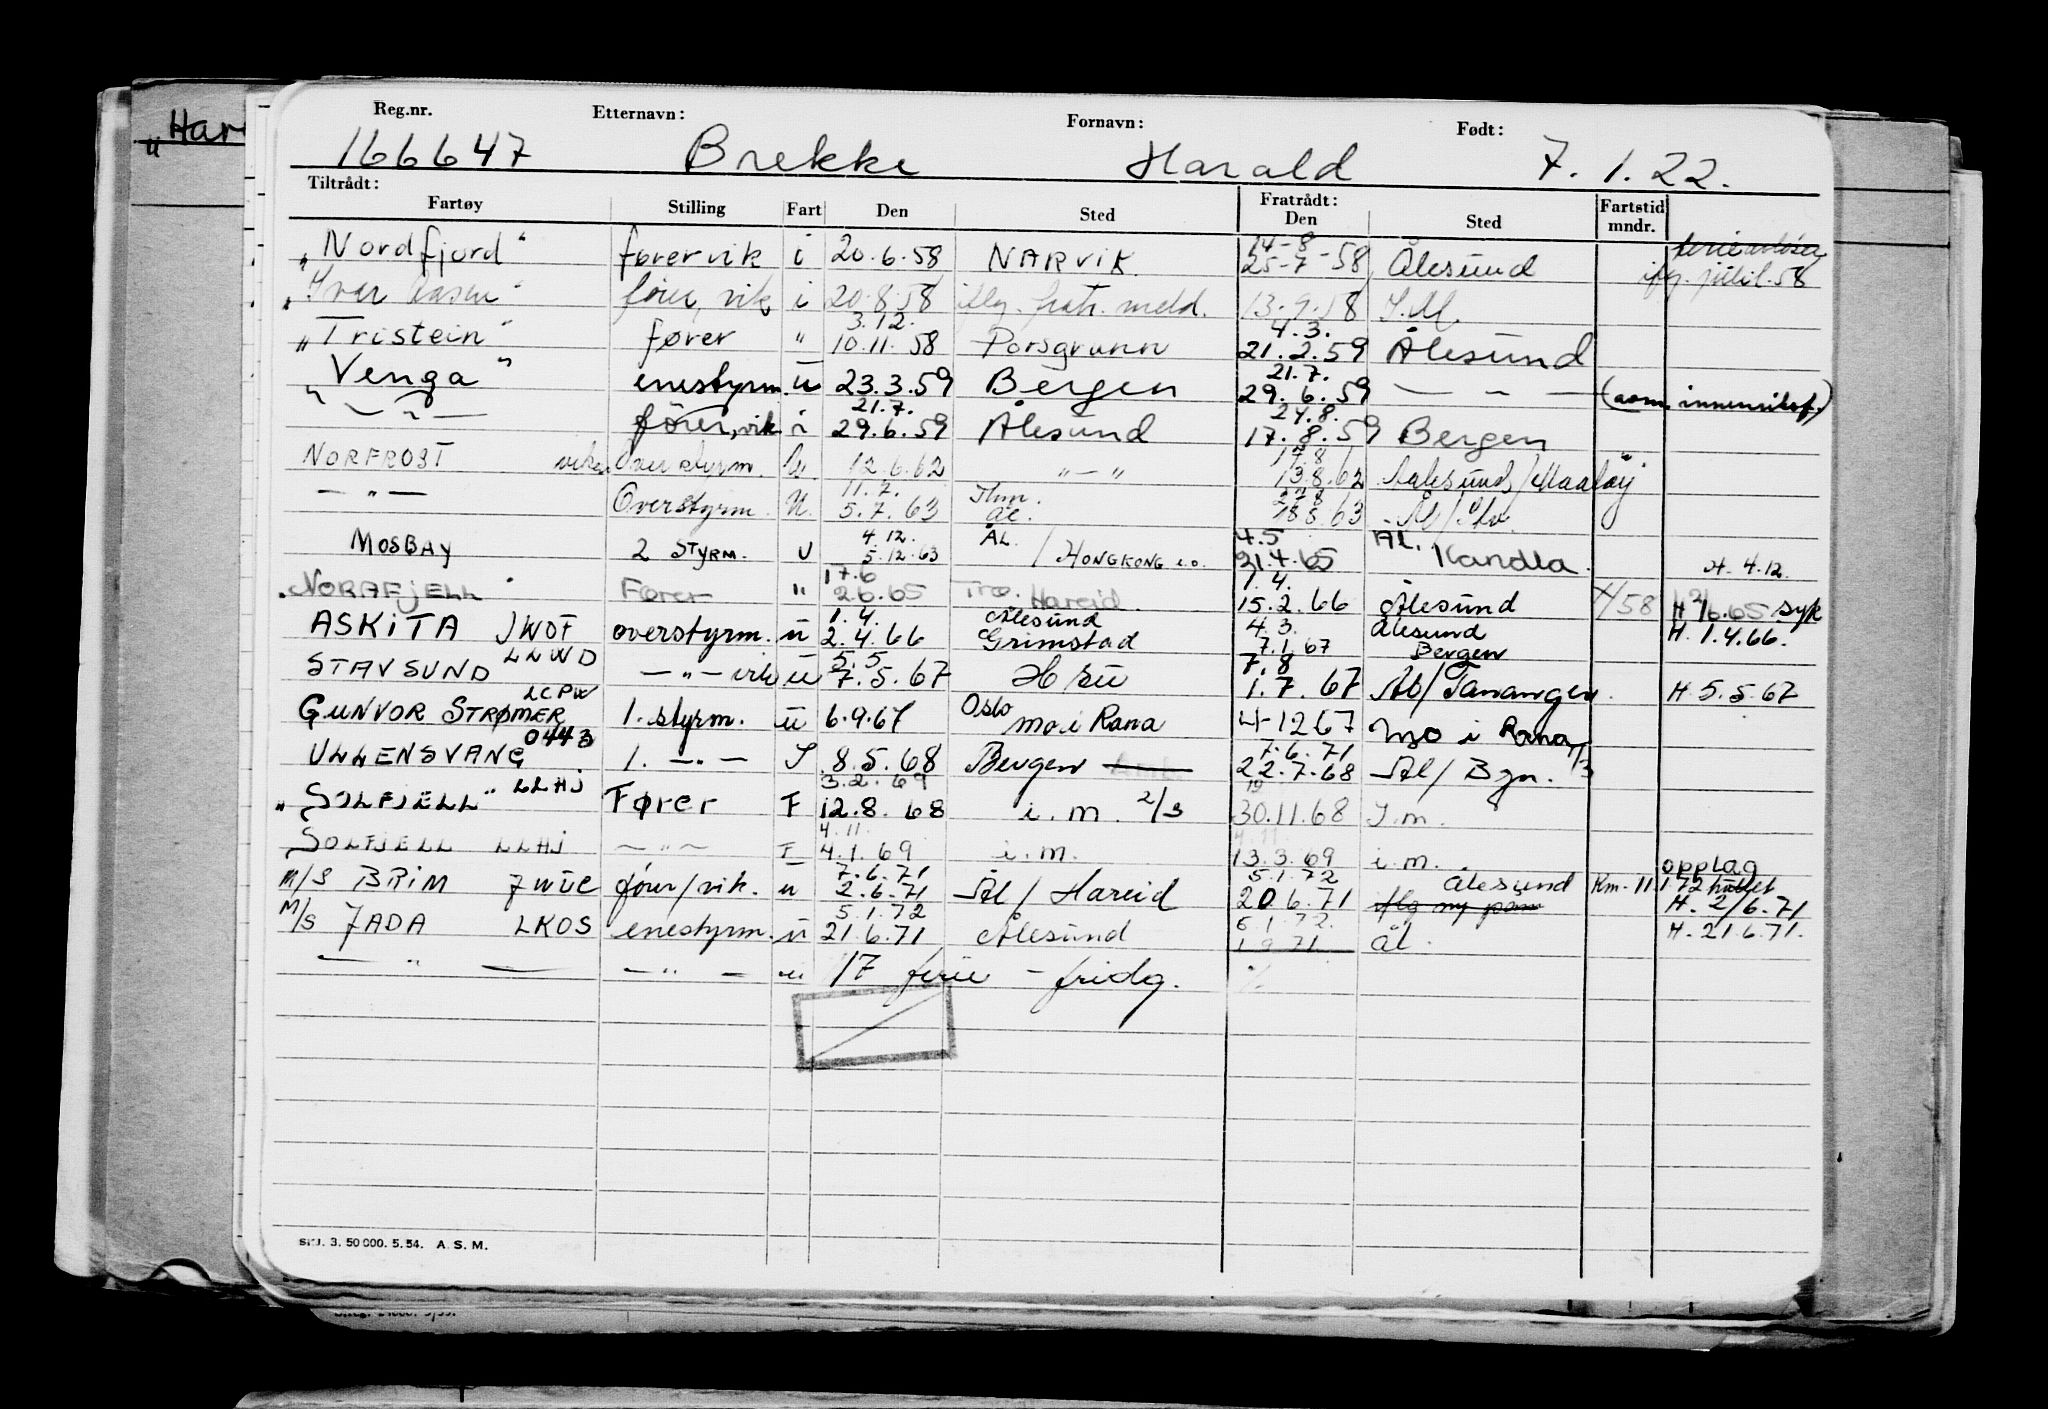 "Har
Reg.nr. Etternavn: Fornavn: Født:
166647 Brekke Harald 7.1.22.
Tiltrådt: Fratrådt:
Fartøy Stilling Fart Den Sted Den Sted Fartstid mndr.
14-8
"Nordfjord" fører vik i 20.6.58 NARVIK. 25-7-58 Ålesund
"Ivar Aasen" fører, vik i 20.8.58 iflg. fratr. meld. 13.9.58 I.M.
3.12. 4.3.
"Tristein" fører " 10.11.58 Porsgrunn 21.2.59 Ålesund
21.7.
"Venga" enestyrm. u 23.3.59 Bergen 29.6.59 — " —
21.7. 24.8.
— " — fører, vik i 29.6.59 Ålesund 17.8.59 Bergen
NORFROST Overstyrm. U. 12.6.62 " — " 13.8.62 Aalesund/Maaløy
11.7.
— " — Overstyrm. U. 5.7.63 Ål. 63
4.12. ÅL. 4.5 ÅL.
MOSBAY 2 STYRM. U 5.12.63 / HONGKONG 21.4.65 Kandla. H. 4.12
17.6 1.4.
NORAFJELL Fører " 26.65 Hareid 15.2.66 Ålesund 4/58 syk
1.4. Ålesund 4.3. Ålesund
ASKITA JWOF overstyrm. u 2.4.66 Grimstad 7.1.67 Bergen H. 1.4.66.
LLWD 5.5 7.8
STAVSUND — " — vik u 7.5.67 1.7.67 Ål/Tanangen. H. 5.5.67
LCPW
GUNVOR STRØMER 1. styrm. u 6.9.67 Oslo mo i Rana 4-12 67 mo i Rana
0443 7.6.71
ULLENSVANG 1. — " — I 8.5.68 Bergen 22.7.68 Ål/Bgn.
LLHJ 3.2.69
"SOLFJELL" Fører F 12.8.68 i.m. 2/3 30.11.68 I.m.
4.11. 4.11.
SOLFJELL LLHJ — " — F 4.1.69 i.m. 13.3.69 i.m.
7.6.71 5.1.72 opplag
M/S BRIM fører/vik. u 2.6.71 Ål/Hareid 20 6.71 Ålesund Km-11. H. 2/6.71
5.1.72 6.1.72.
M/S JADA LKOS enestyrm. u 21.6.71 Ålesund 1 9 71 Ål. H. 21.6.71.
— " — — " — u 17 ferie - fridg.
3. 50 000. 5.54. A. S. M.